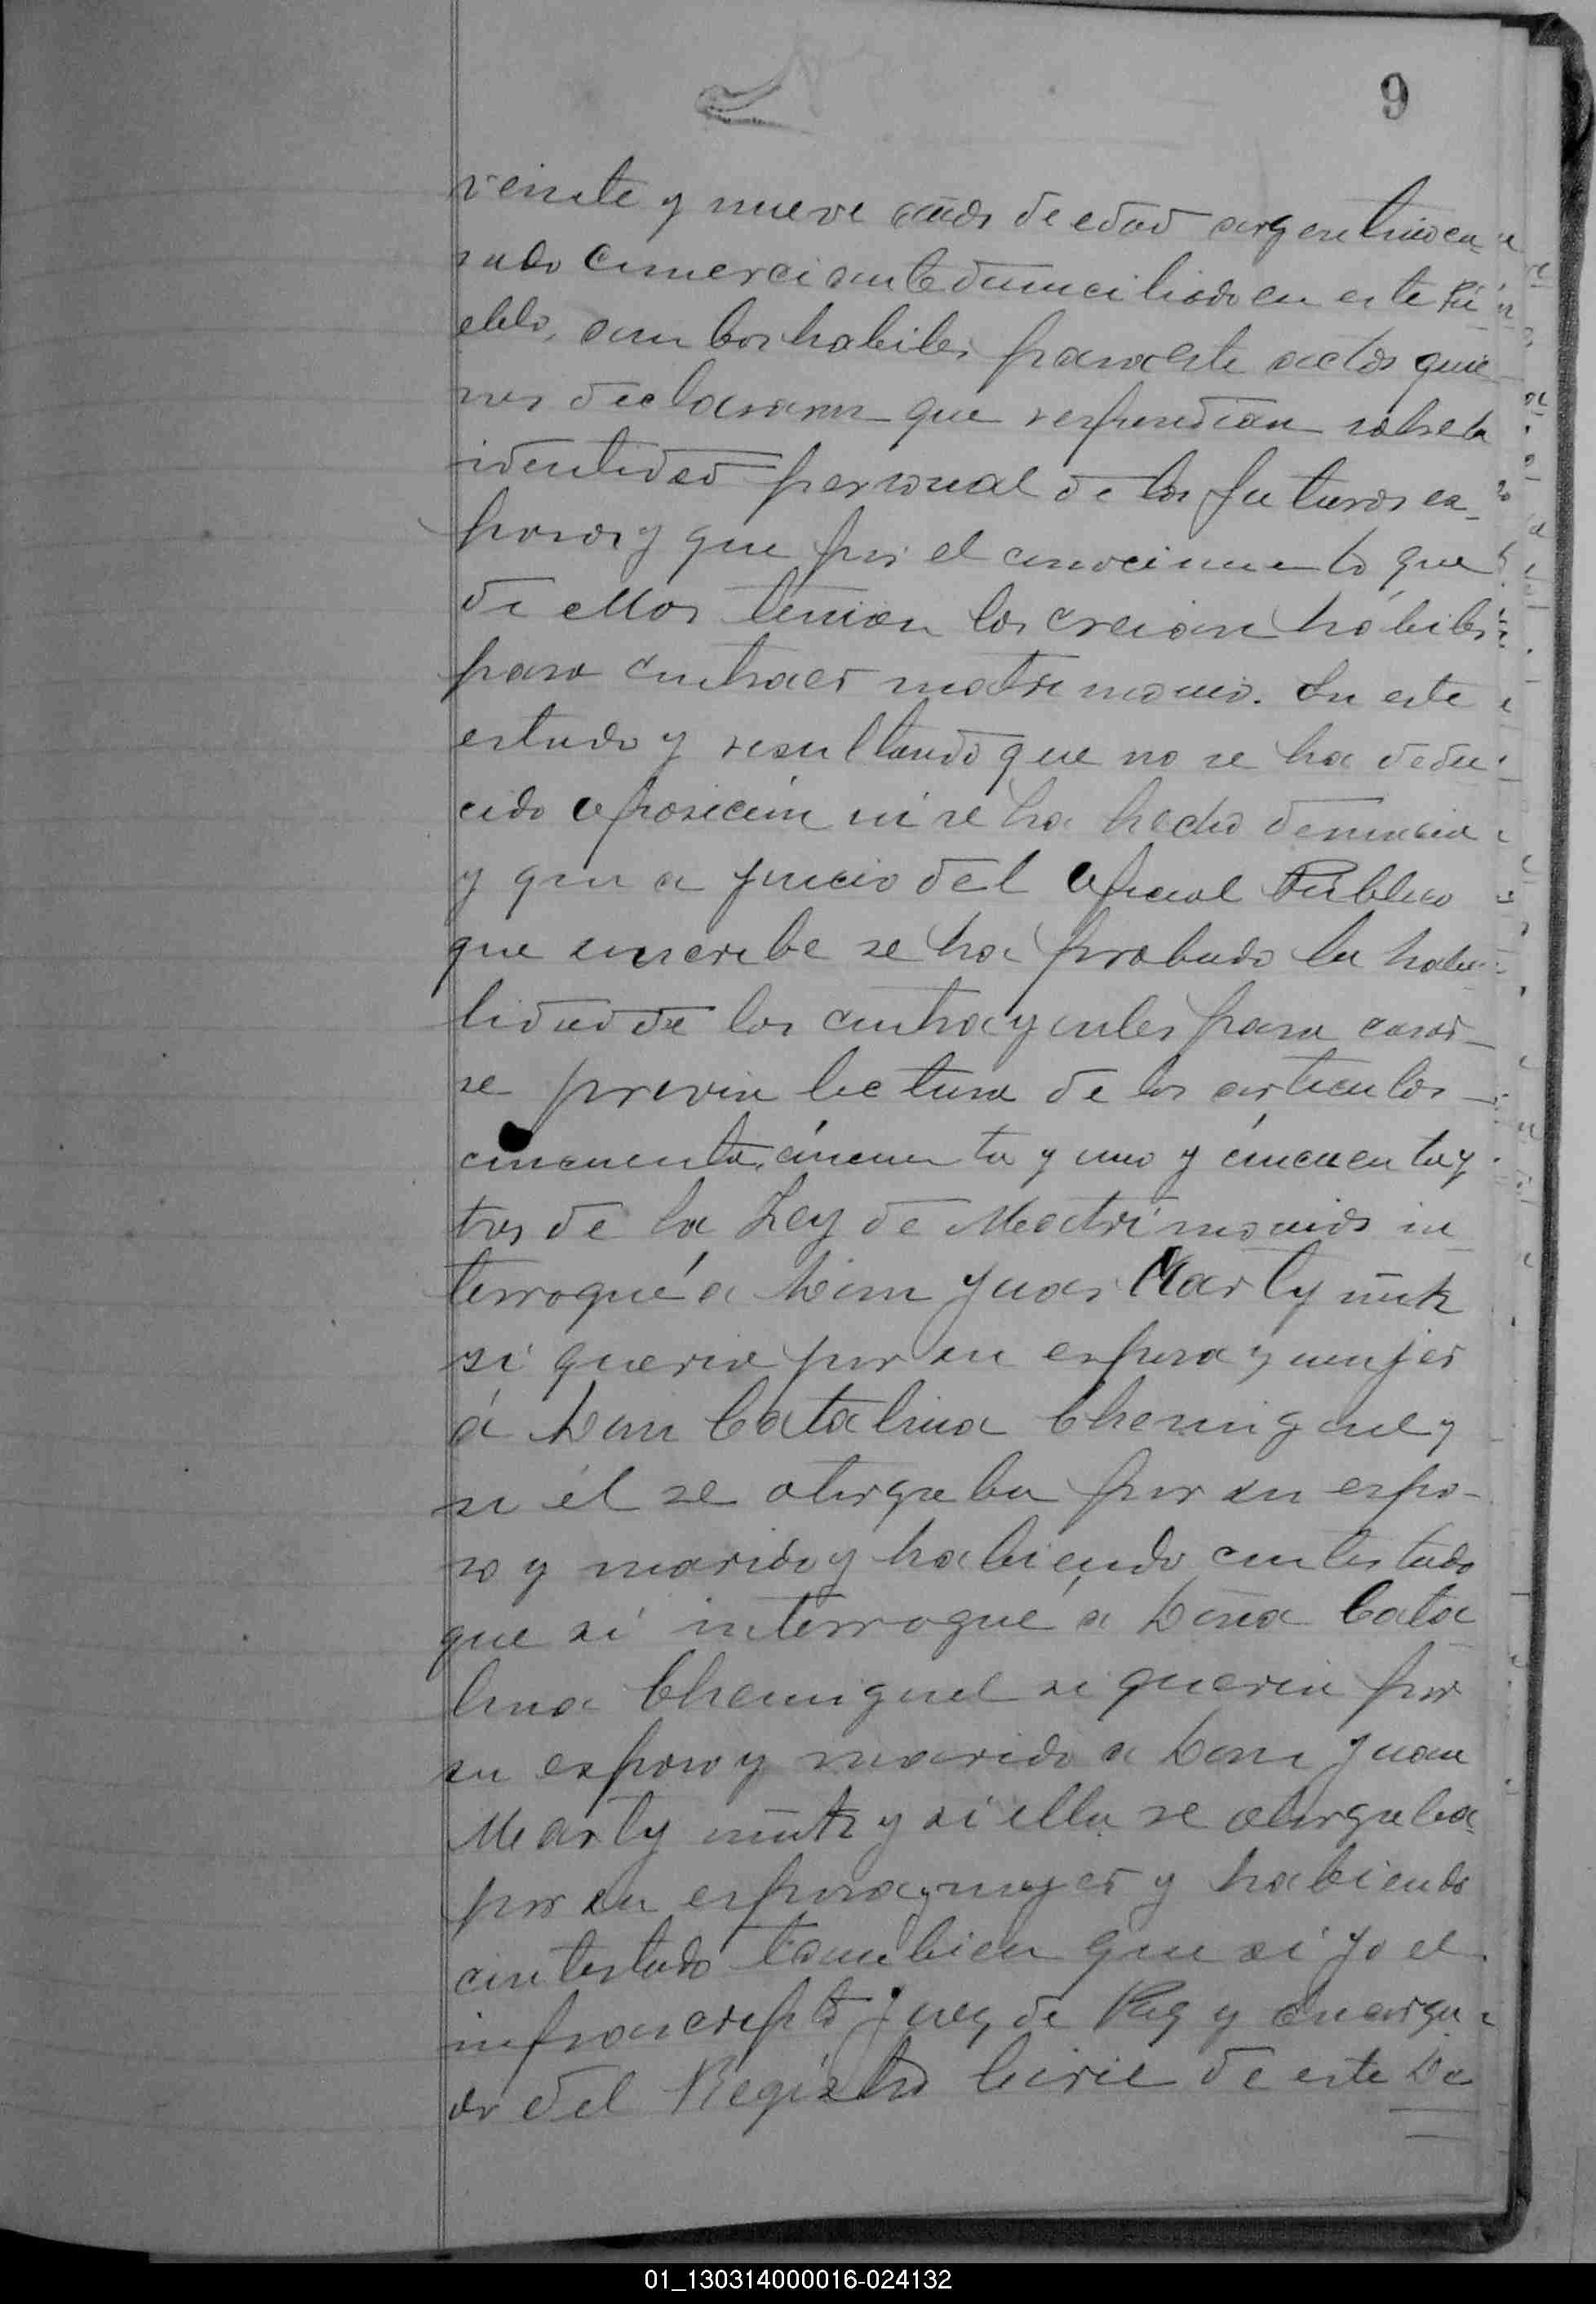 9
veinte y nueve años de edad argentino ca-
sado comerciante domiciliado en este Pu-
eblo, ambos habiles para este actos quie-
nes declararon que respondian sobre la
identidad personal de los futuros es-
posos y que por el conocimiento que
de ellos tenian los creian hábiles
para contraer matrimonio. En este
estado y resultando que no se ha dedu-
cido oposicion ni se ha hecho denuncia
y que a juicio del Oficial Público
que suscribe se ha probado la habi-
lidad de los contrayentes para casar-
se previa lectura de los articulos
cincuenta, cincuenta y uno y cincuenta y
tres de la Ley de Matrimonios in-
terrogué a Don Juan Marty
si queria por su esposa y mujer
á Catalina Chemiguel y
si él se otorgaba por su espo-
so y marido y habiendo contestado
que si interrogué a Doña Cata
lina Chemiguel si queria por
su esposo y marido a Don Juan
Marty y si ella se otorgaba
por su esposa y mujer y habiendo
contestado tambien que si yo el
infrascripto Juez de Paz y encarga-
do del Registro Civil de este De
01_130314000016-024132